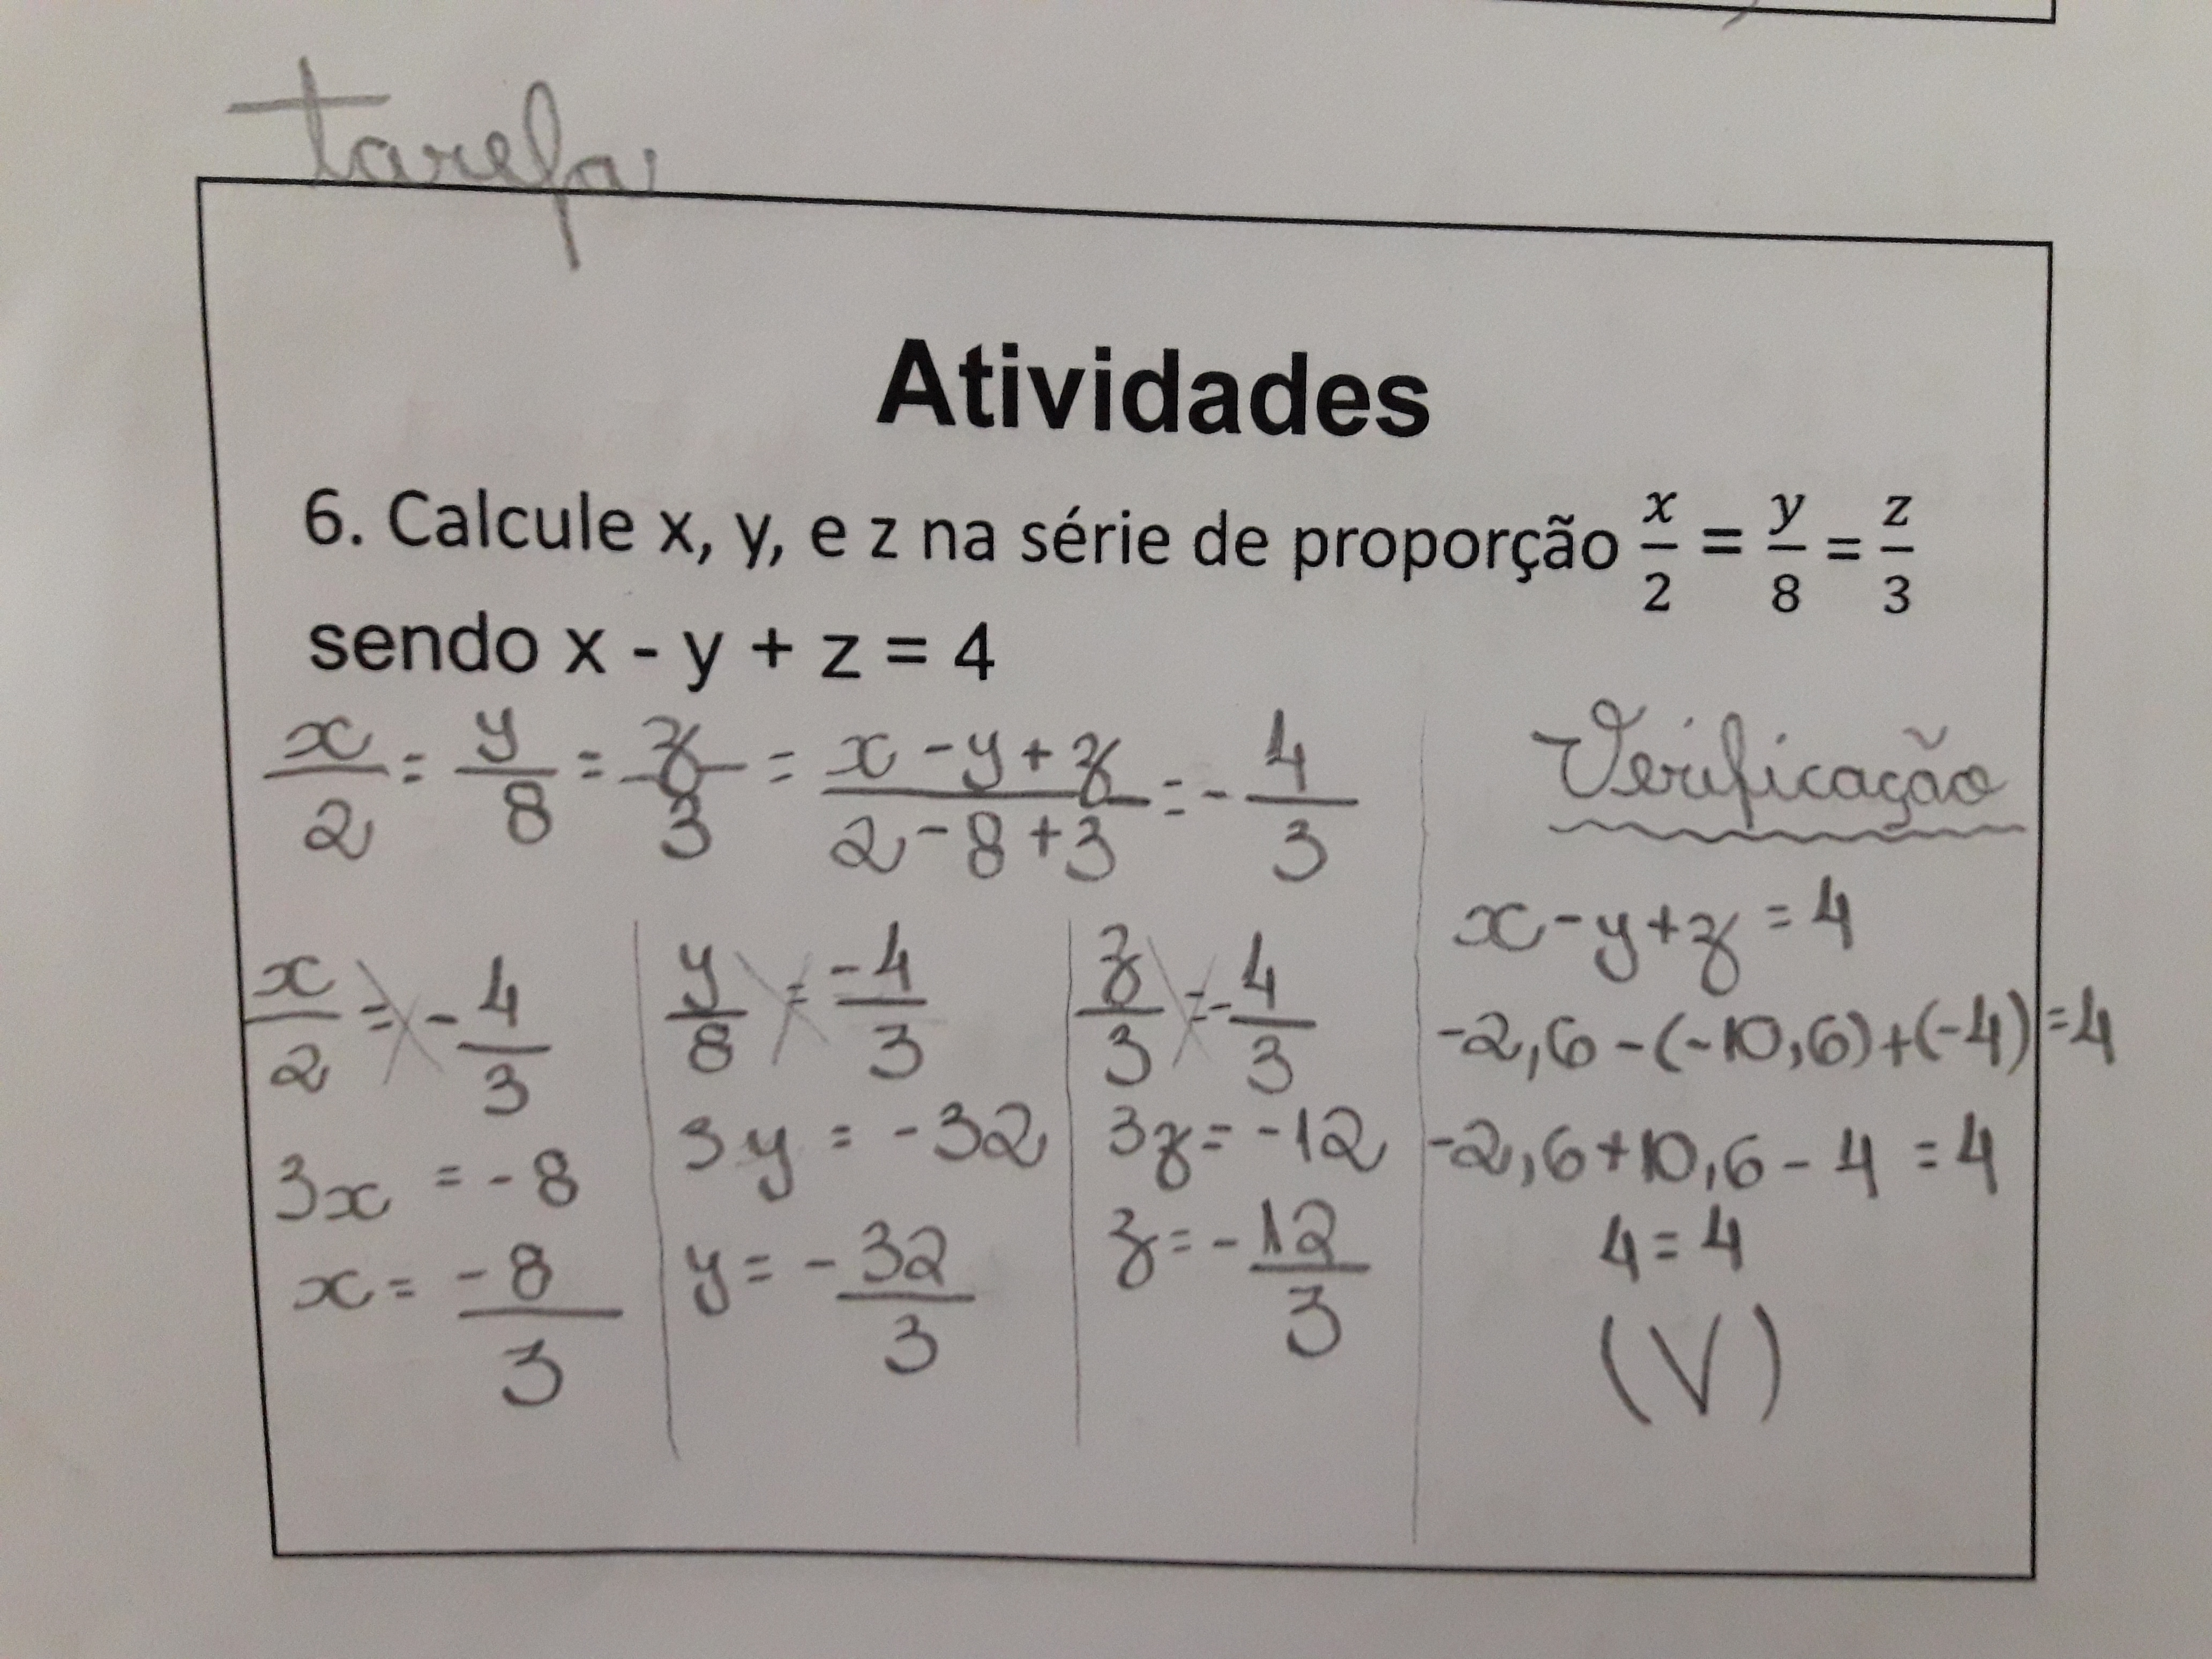 tarefa
Atividades
6. Calcule x, y, e z na série de proporção x/2 = y/8 = z/3
sendo x - y + z = 4
x/2 = y/8 = z/3 = (x - y + z)/(2 - 8 + 3) = - 4/3
x/2 = - 4/3
3x = - 8
x = - 8/3
y/8 = - 4/3
3y = - 32
y = - 32/3
z/3 = - 4/3
3z = - 12
z = - 12/3
Verificação
x - y + z = 4
-2,6 - (-10,6) + (-4) = 4
-2,6 + 10,6 - 4 = 4
4 = 4
(V)